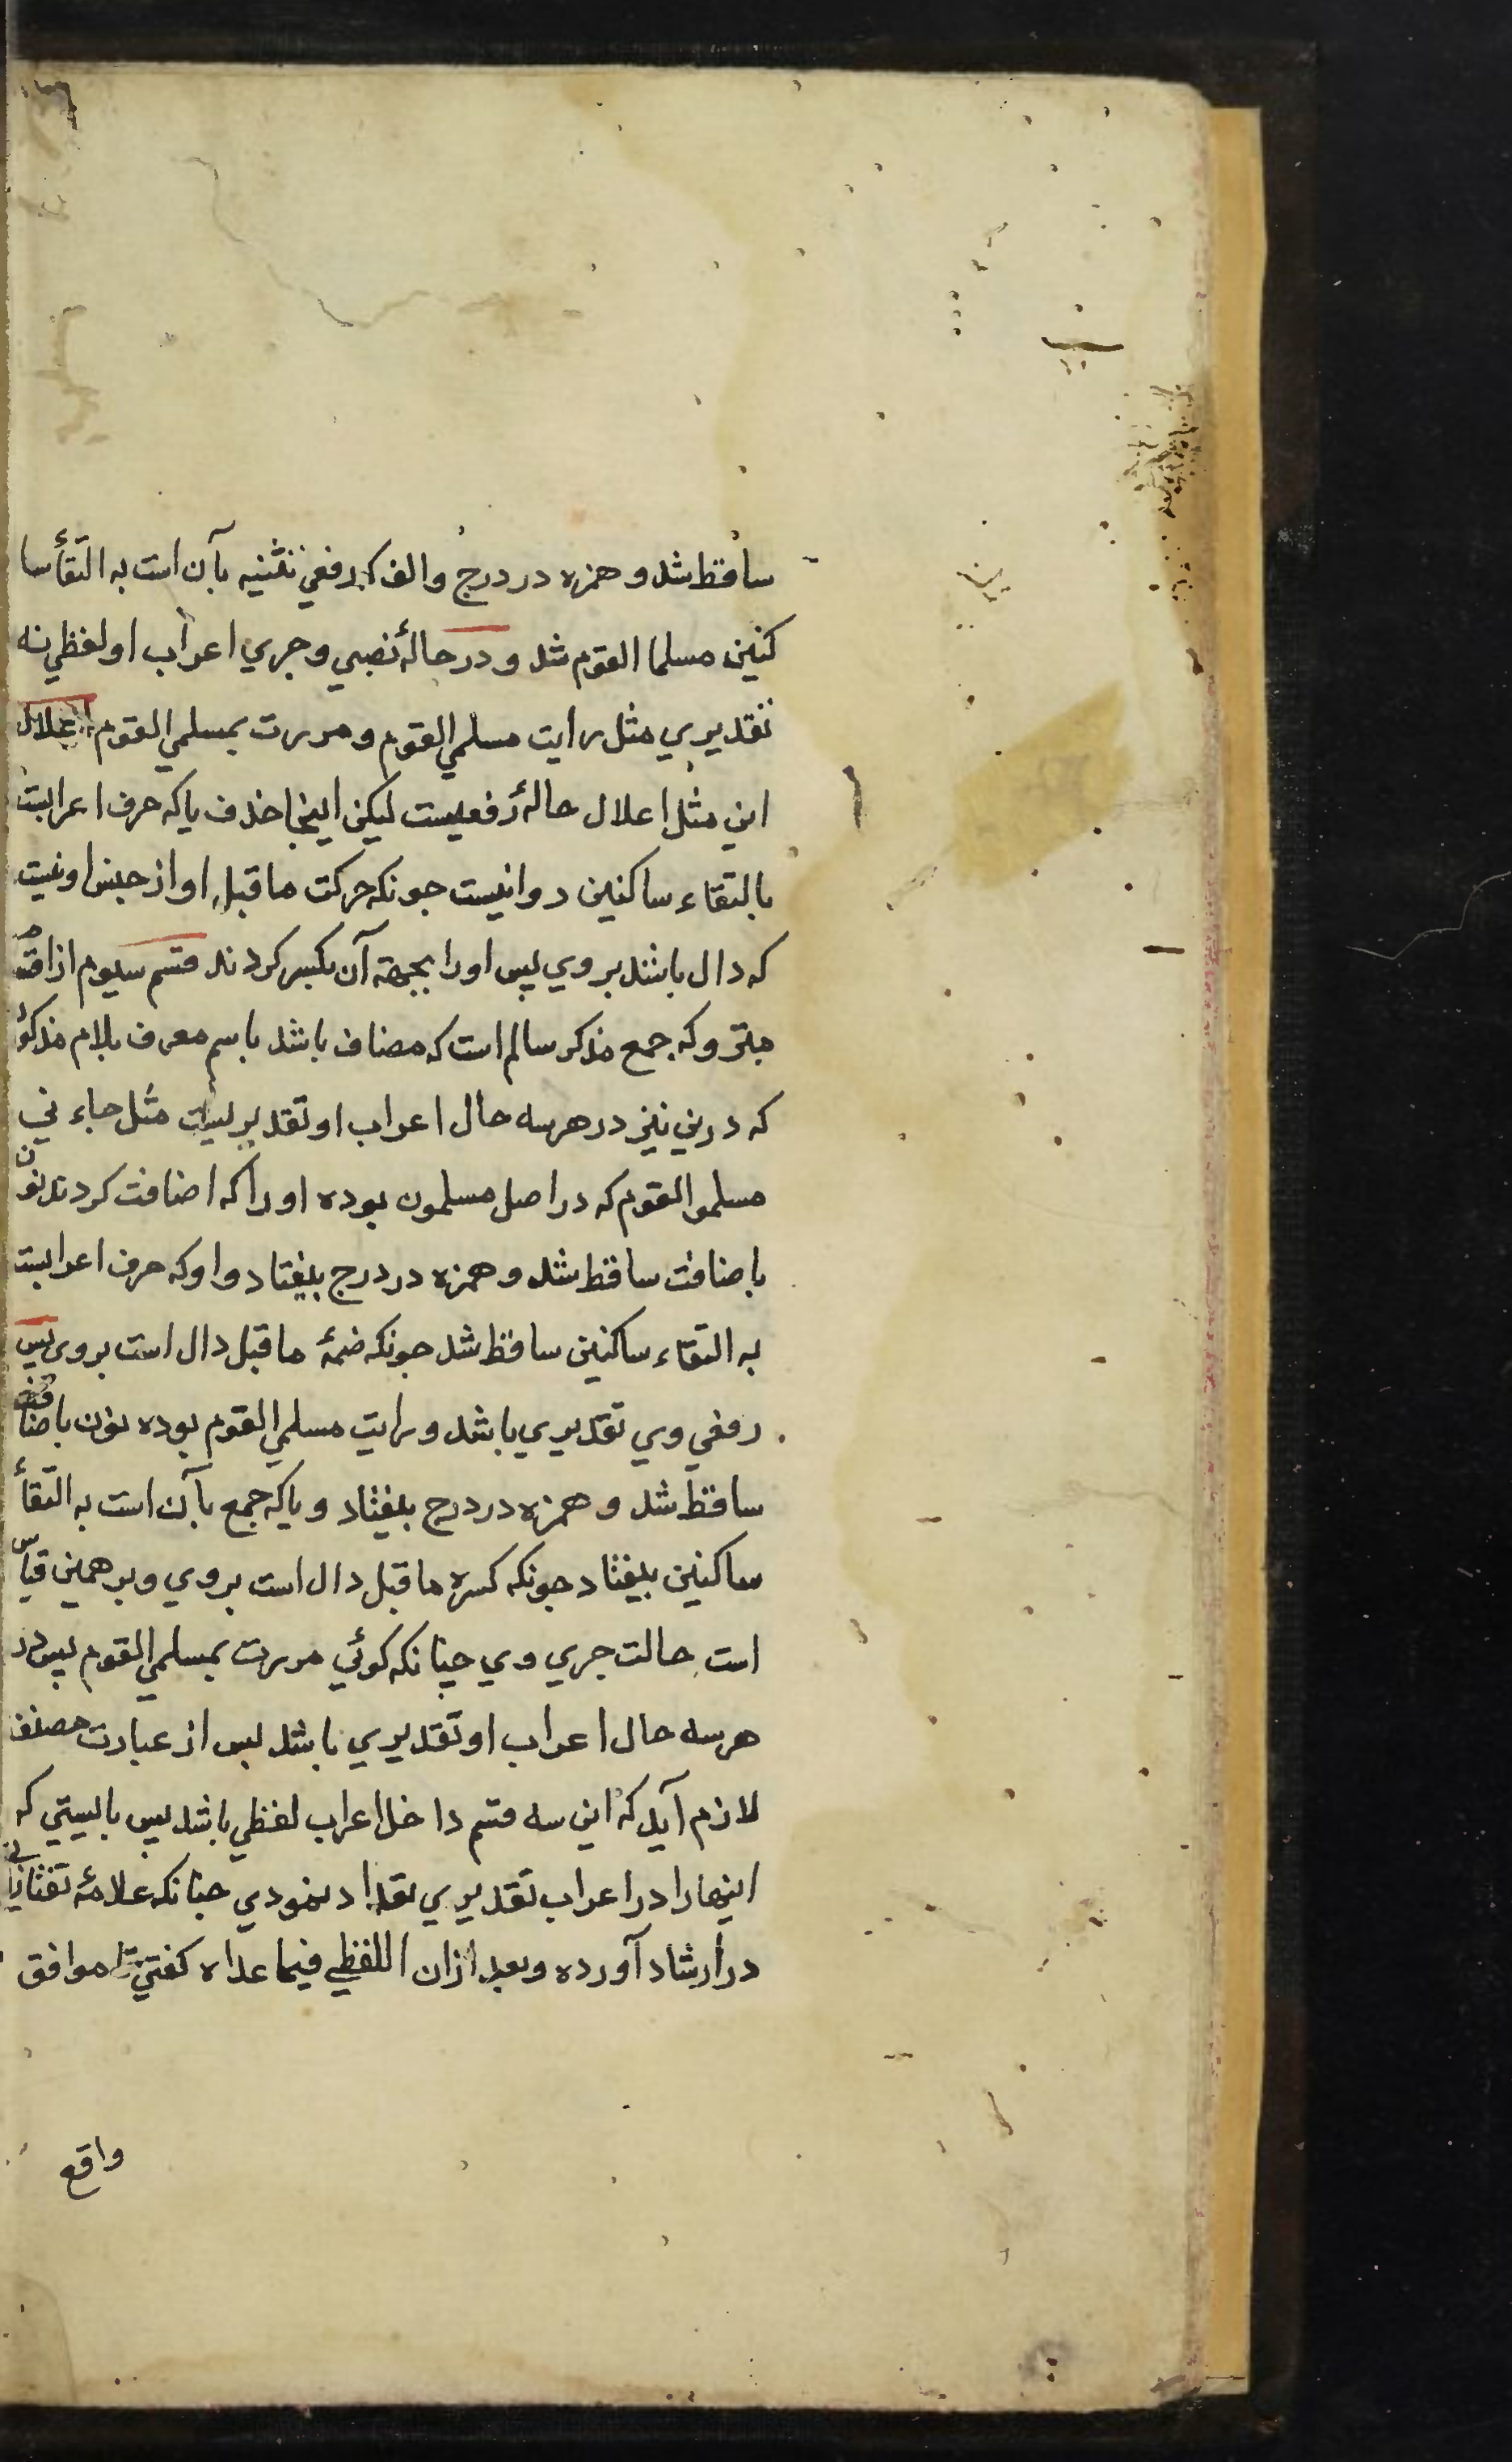 ساقط شد و همزه در درج و الف که رفعي تثنیه بآن است به التقأ سا
کنین مسلما القوم شد و در حالهٔ نصبي و جري اعراب او لفظي نه
تقدیري مثل رایت مسلمي القوم و مررت بمسلمي القوم اعلال
این مثل اعلال حالهٔ رفعیست لیکن اینجا حذف یا که حرف اعرابیت
بالتقاء ساکنین روا نیست جونکه حرکت ما قبل او از جنس او نیست
که دال باشد بروي پس او را بجهة آن بکسر کردند قسم سیوم از
متروکه جمع مذکر سالم است که مضاف باشد باسم معرف بلام مذکور
که درین نیز در هر سه حال اعراب او تقدیریست مثل جاء ني
مسلمو القوم که در اصل مسلمون بوده او را که اضافت کردند نون
باضافت ساقط شد و همزه در درج بیفتاد و واو که حرف اعرابیت
به التقاء ساکنین ساقط شد جونکه ضمهٔ ما قبل دال است بروی پس
رفعي وي تقدیري باشد و رایت مسلمي القوم بوده نون باضافت
ساقط شد و همزه در درج بیفتاد و یا که جمع بآن است به التقأ
ساکنین بیفتاد جونکه کسره ما قبل دال است بروي و بر همین قیاس
است حالت جري وي جنانکه کوئي مررت بمسلمي القوم پس در
هر سه حال اعراب او تقدیري باشد پس از عبارت مصنف
لازم آید که این سه قسم داخل اعراب لفظي باشد پس بایستي که
اینها را در اعراب تقدیري تعداد نمودي جنانکه علامهٔ تفتازاني
در ارشاد آورده و بعد ازان اللفظي فیما عداه کفتي تا موافق
واقع